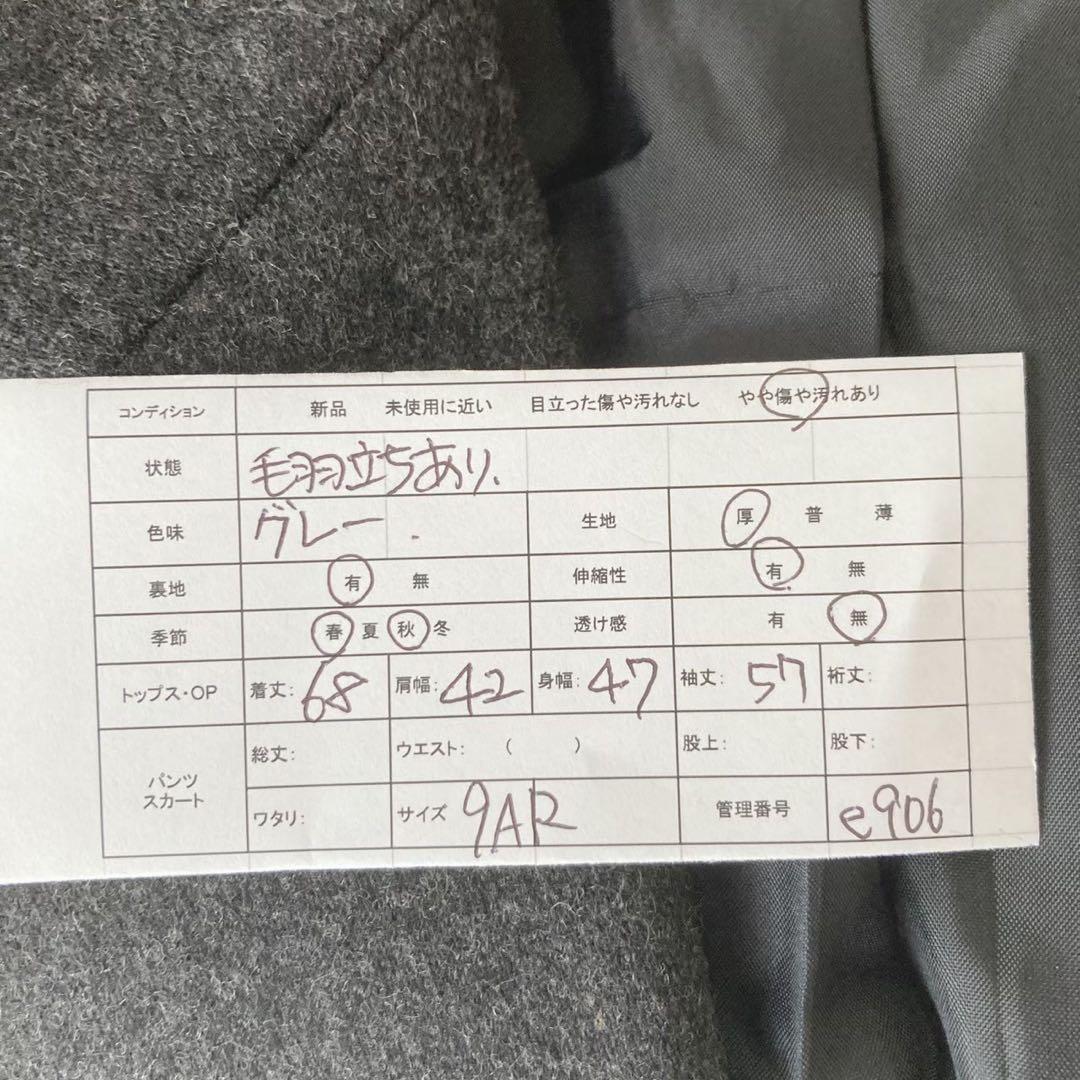 コンディション 新品 未使用に近い 目立った傷や汚れなし やや傷や汚れあり
状態 毛羽立ちあり.
色味 グレー. 生地 厚 普 薄
裏地 有 無 伸縮性 有 無
季節 春 夏 秋 冬 透け感 有 無
トップス・OP 着丈: 68 肩幅: 42 身幅: 47 袖丈: 57 裄丈:
パンツ スカート 総丈: ウエスト: ( ) 股上: 股下:
ワタリ: サイズ 9AR 管理番号 e906